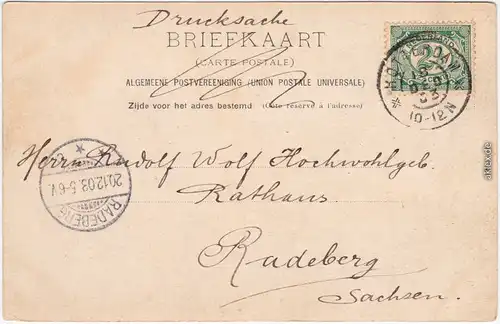 Drucksache
BRIEFKAART
(CARTE POSTALE)
ALGEMEENE POSTVEREENIGING (UNION POSTALE UNIVERSELLE)
Zijde voor het adres bestemd (Côté réservé à l'adresse)
ROTTERDAM
10-12N
Herrn Rudolf Wolf Hochwohlgeb.
Rathaus
Radeberg
Sachsen.
20.12.03.5-6V.
RADEBERG